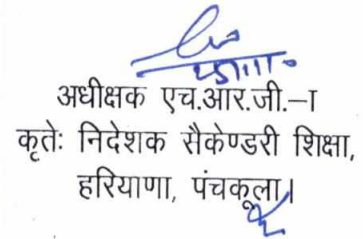 अधीक्षक एच.आर.जी.–I
कृतेः निदेशक सैकेण्डरी शिक्षा,
हरियाणा, पंचकूला।